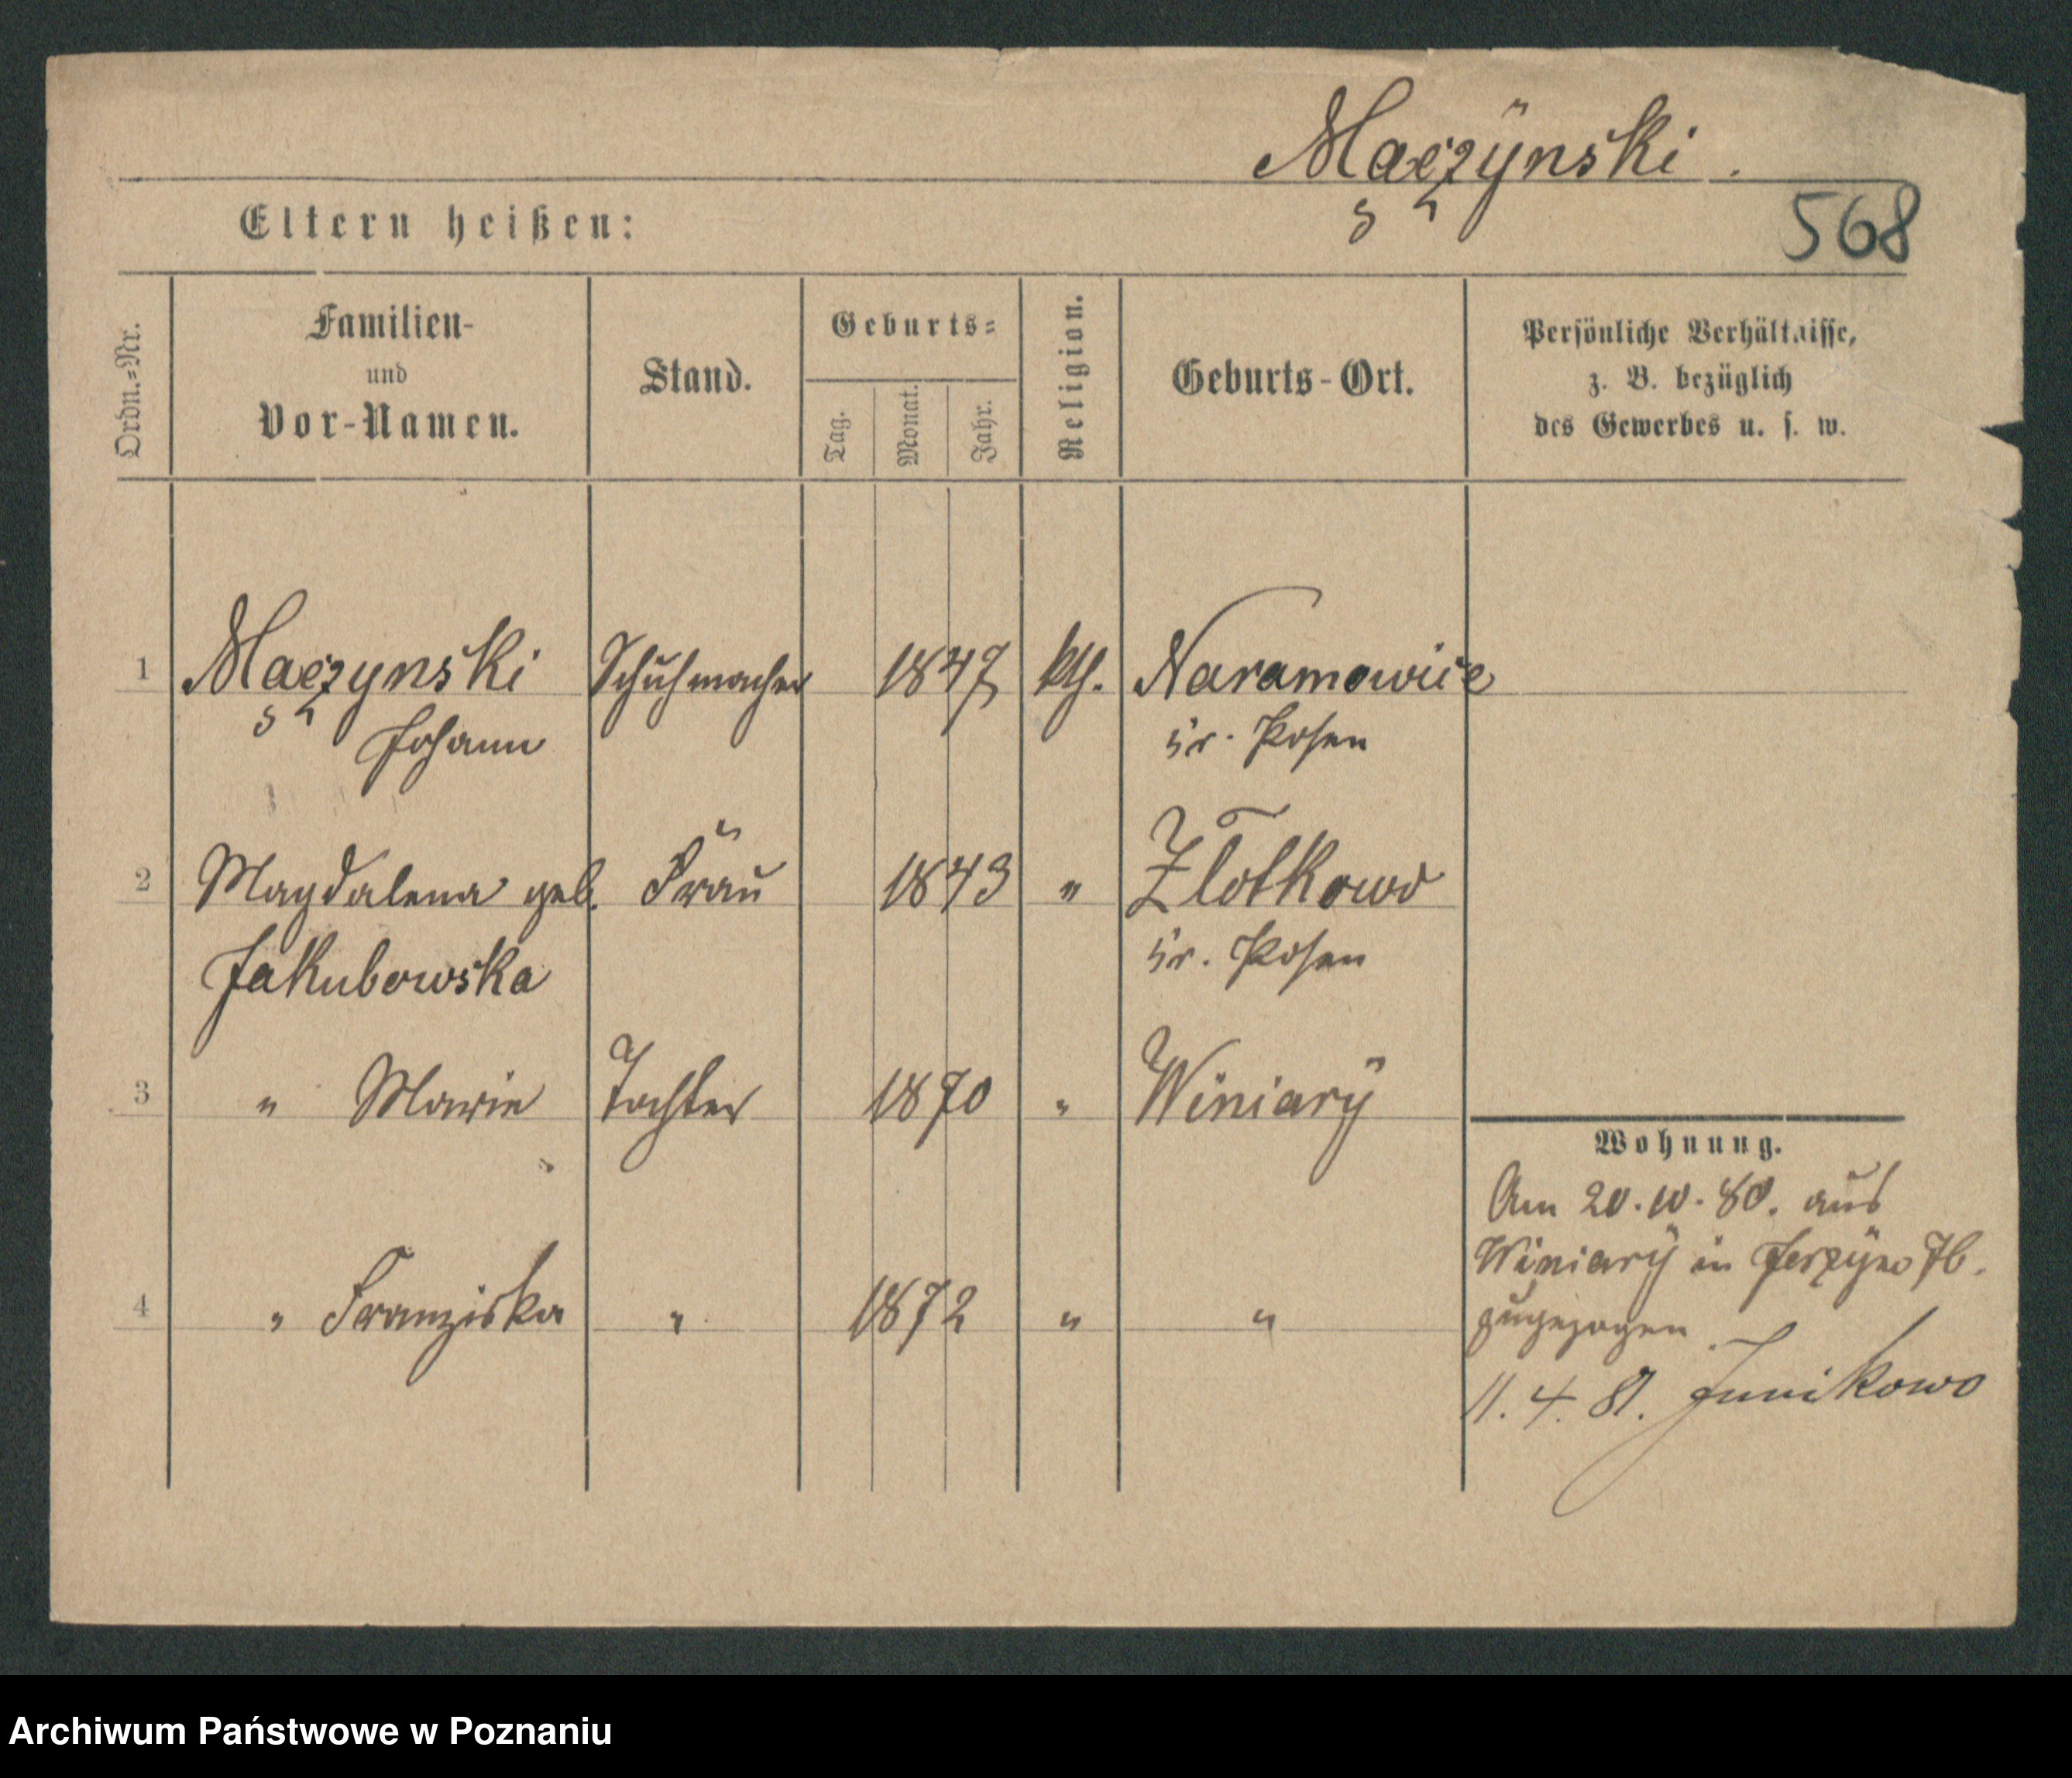 Maczÿnski.
568
Eltern heißen:
Ordn.-Nr.
Familien-
und
Vor-Namen.
Stand.
Geburts-
Tag.
Monat.
Jahr.
Religion.
Geburts-Ort.
Persönliche Verhältnisse,
z. B. bezüglich
des Gewerbes u. s. w.
1 Maczynski Schuhmacher 1847 kth. Naramowice
Johann Kr. Posen
2 Magdalena geb. Frau 1843 " Złotkowo
Jakubowska Kr. Posen
3 " Marie Tochter 1870 " Winiarÿ
Wohnung.
Am 20.10.80. aus
Winiarÿ in Jerzÿce
zugezogen
4 " Franziska " 1872 " "
11.4.81. Junikowo
Archiwum Państwowe w Poznaniu